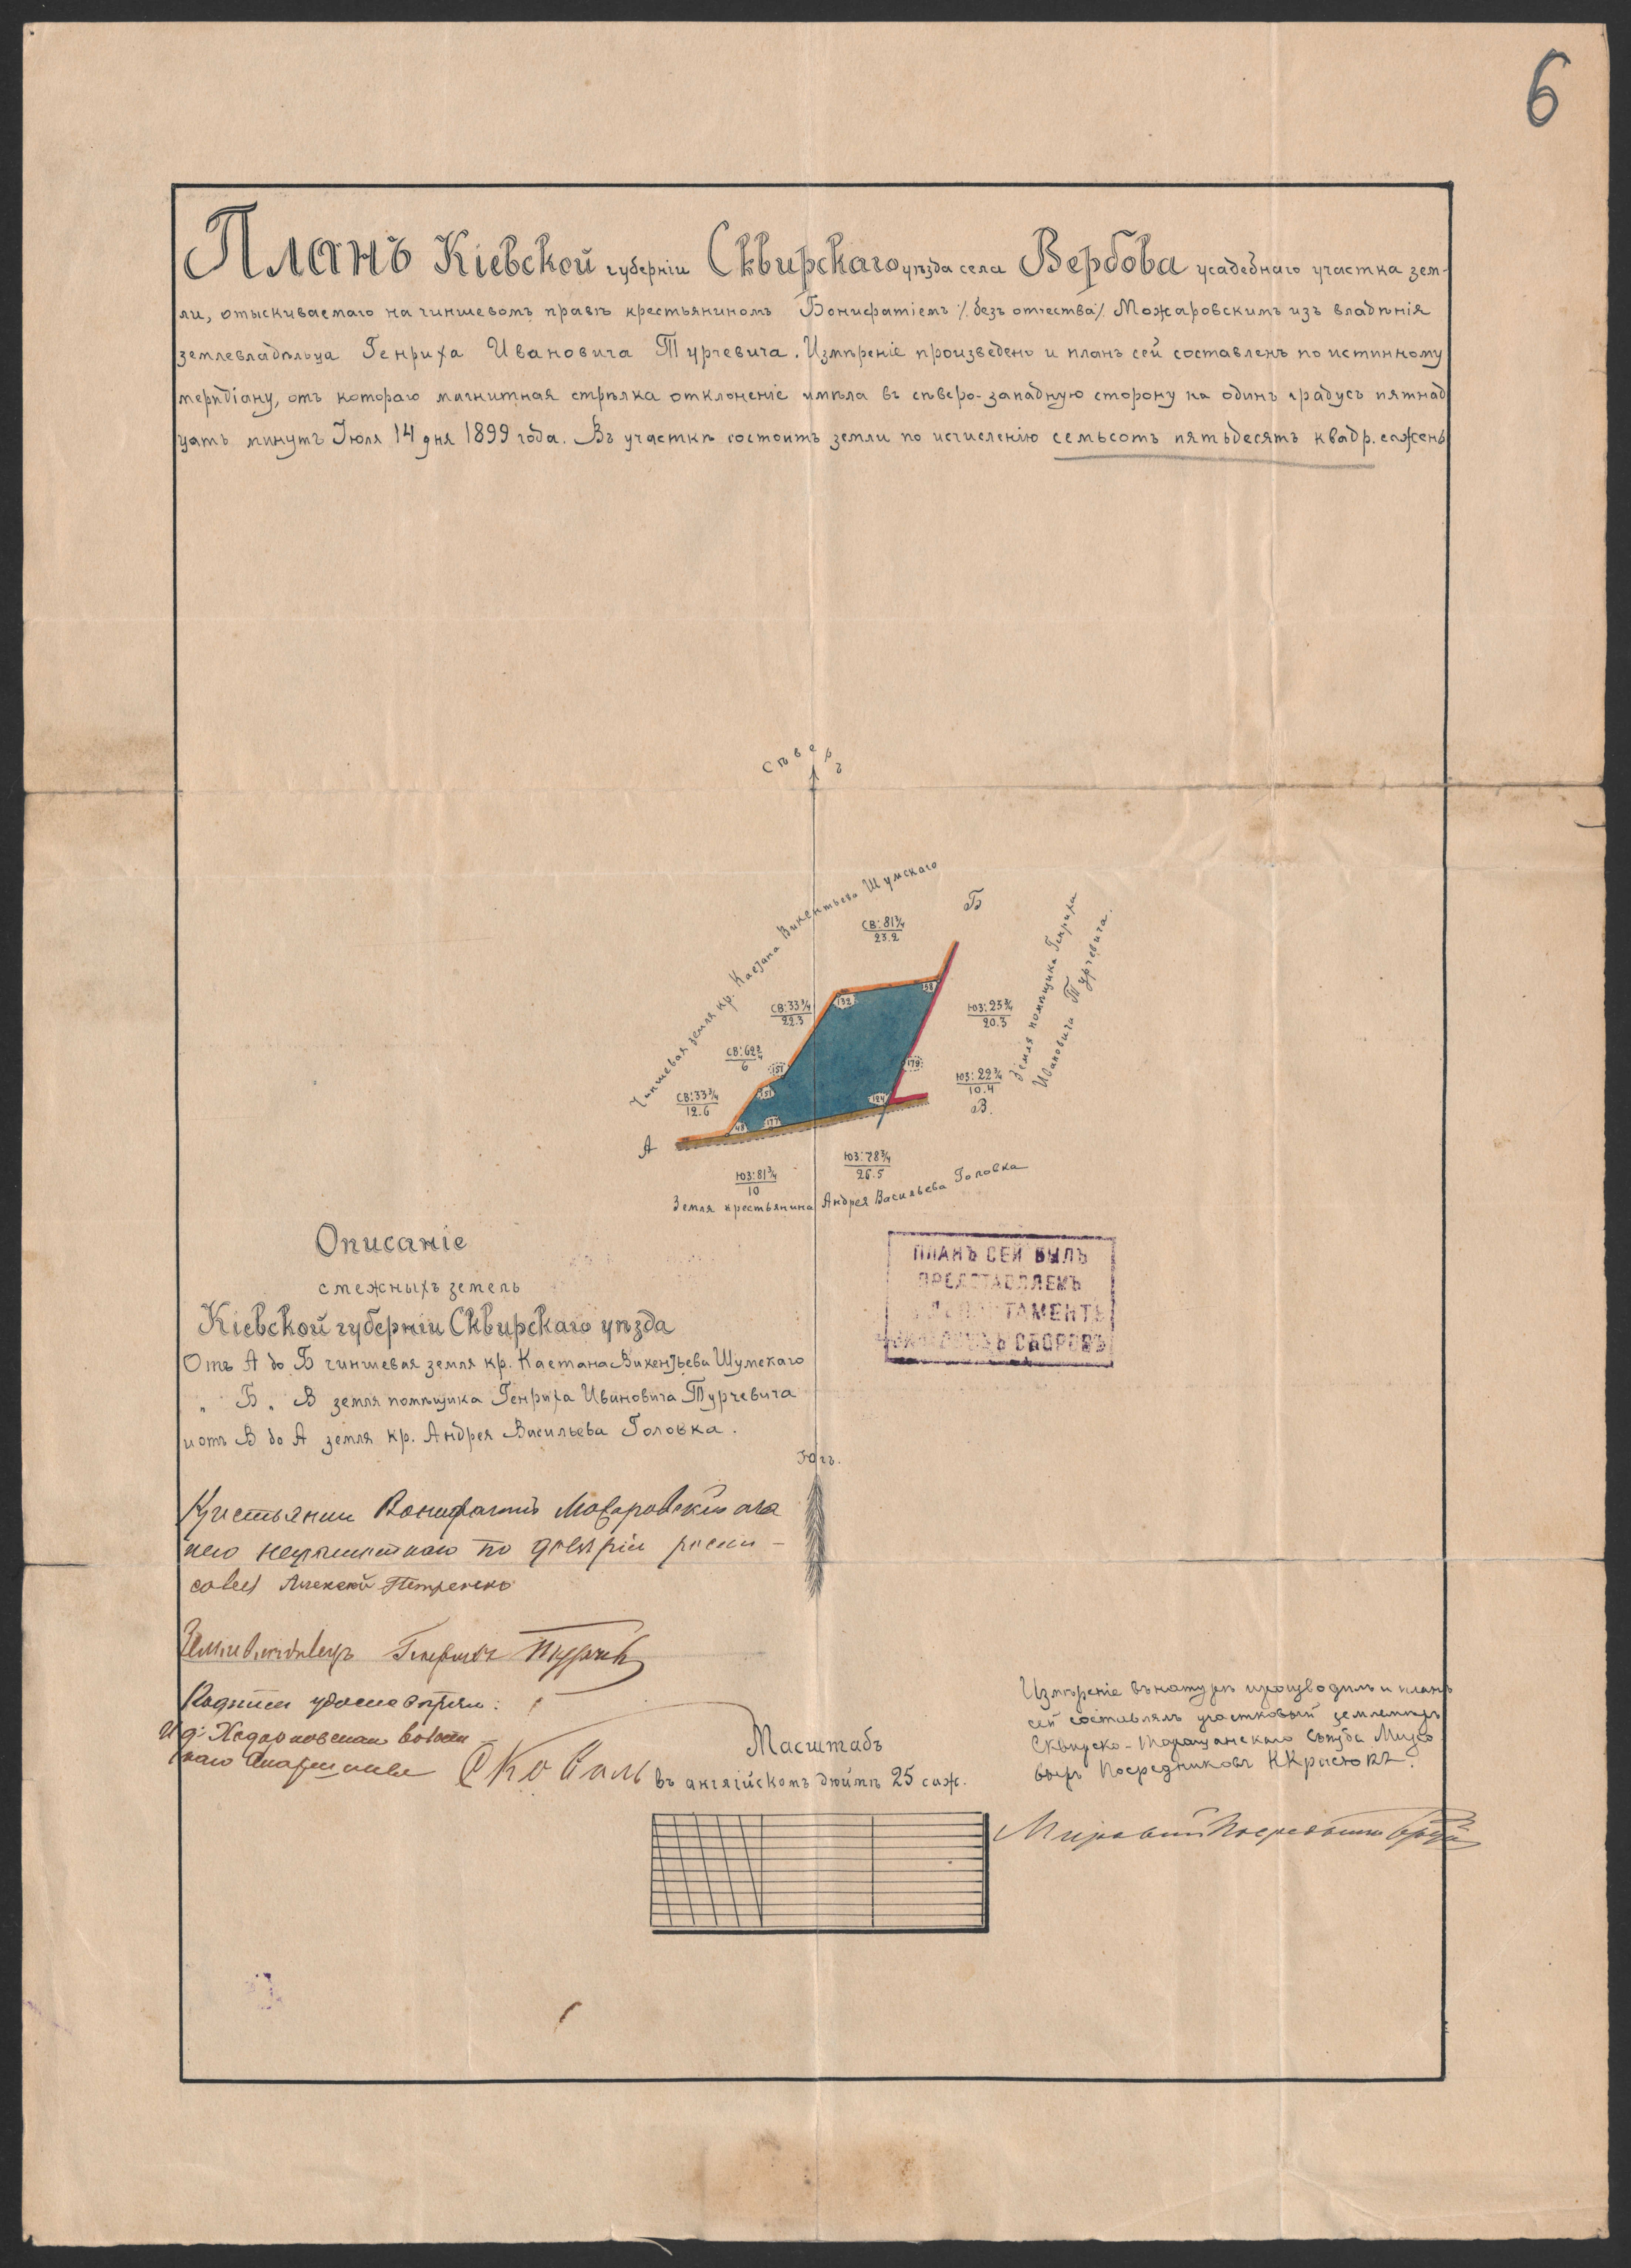 6
Планъ Кіевской губерніи Сквирскаго уѣзда села Вербова усадебнаго участка зем-
ли, отыскиваемаго на чиншевомъ правѣ крестьяниномъ Бонифатіемъ /безъ отчества/ Можаровскимъ изъ владѣнія
землевладѣльца Генриха Ивановича Турчевича. Измѣреніе произведено и планъ сей составленъ по истинному
меридіану, отъ котораго магнитная стрѣлка отклоненіе имѣла въ сѣверо-западную сторону на одинъ градусъ пятнад
цать минутъ Іюля 14 дня 1899 года. Въ участкѣ состоитъ земли по исчисленію семьсотъ пятьдесятъ квадр. сажень
Сѣверъ
Чиншевая земля кр. Каетана Викентьева Шумскаго
Б
СВ: 81¾
23.2
Земля помѣщика Генриха
Ивановича Турчевича.
132
158
СВ: 33¾
22.3
ЮЗ: 23¾
20.3
СВ: 62¾
6
151
179
151
ЮЗ: 22¾
10.4
СВ: 33¾
12.6
124
В.
48
177
А
ЮЗ: 78¾
26.5
ЮЗ: 81¾
10
Земля крестьянина Андрея Васильева Головка
Описаніе
смежныхъ земель
Кіевской губерніи Сквирскаго уѣзда
Отъ А до Б чиншевая земля кр. Каетана Викентьева Шумскаго
„ Б „ В земля помѣщика Генриха Ивановича Турчевича
и отъ В до А земля кр. Андрея Васильева Головка.
ПЛАНЪ СЕЙ БЫЛЪ
ПРЕДСТАВЛЯЕМЪ
ДЕПАРТАМЕНТЪ
СБОРОВЪ
Югъ.
Крестьянин Вонифатій Можаровскій а за
него неграмотнаго по довѣрію роспи-
сался Алексей Петренко
Землевладѣлецъ Генрихъ Турчев
Подписи удостовѣряю:
И д: Ходорковскаго волост
наго Старшины СКоваль
Масштабъ
въ англійскомъ дюймѣ 25 саж.
Измѣреніе въ натурѣ производилъ и планъ
сей составлялъ участковый землемѣръ
Сквирско-Таращанскаго Съѣзда Миро
выхъ Посредниковъ
Мировой Посредникъ